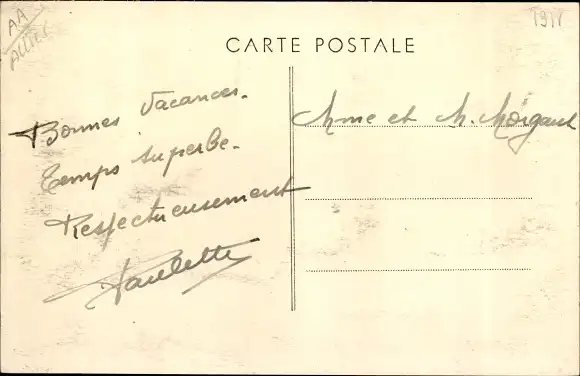 AA
CARTE POSTALE
Bonnes Vacances.
Temps superbe.
Respectueusement
Paulette
Mme et M. Morgant